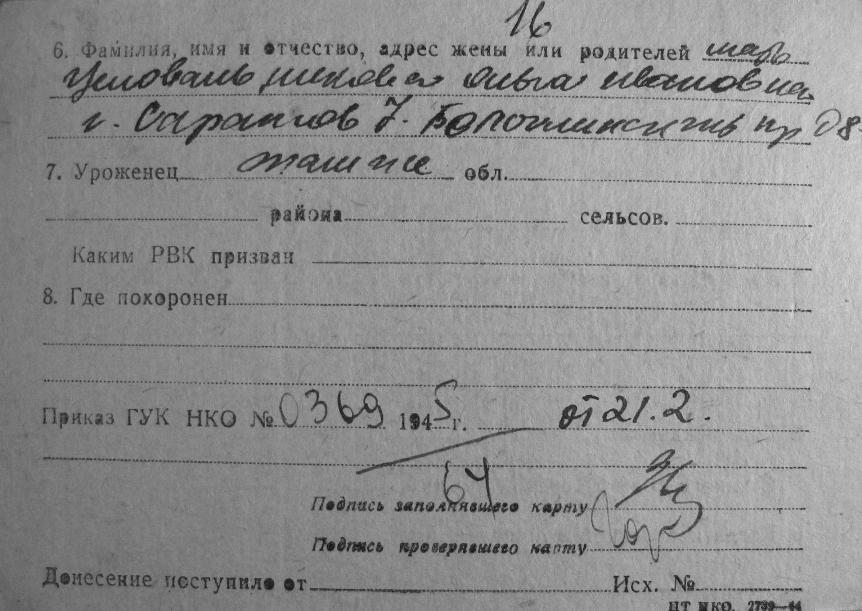 16
6. Фамилия, имя и отчество, адрес жены или родителей мать
Целовальникова Ольга Ивановна
г. Саратов 7.
7. Уроженец там же обл.
района сельсов.
Каким РВК призван
8. Где похоронен
Приказ ГУК НКО № 0369 1945 г. от 21.2.
64
Подпись заполнявшего карту
Подпись проверявшего карту
Донесение поступило от Исх. №
ЦТ НКО. 2799—44